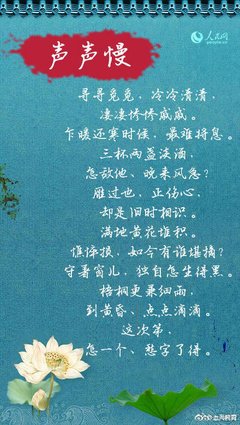 人民网
people.cn
声声慢
寻寻觅觅，冷冷清清，
凄凄惨惨戚戚。
乍暖还寒时候，最难将息。
三杯两盏淡酒，
怎敌他、晚来风急？
雁过也，正伤心，
却是旧时相识。
满地黄花堆积。
憔悴损，如今有谁堪摘？
守著窗儿，独自怎生得黑。
梧桐更兼细雨，
到黄昏、点点滴滴。
这次第，
怎一个、愁字了得。